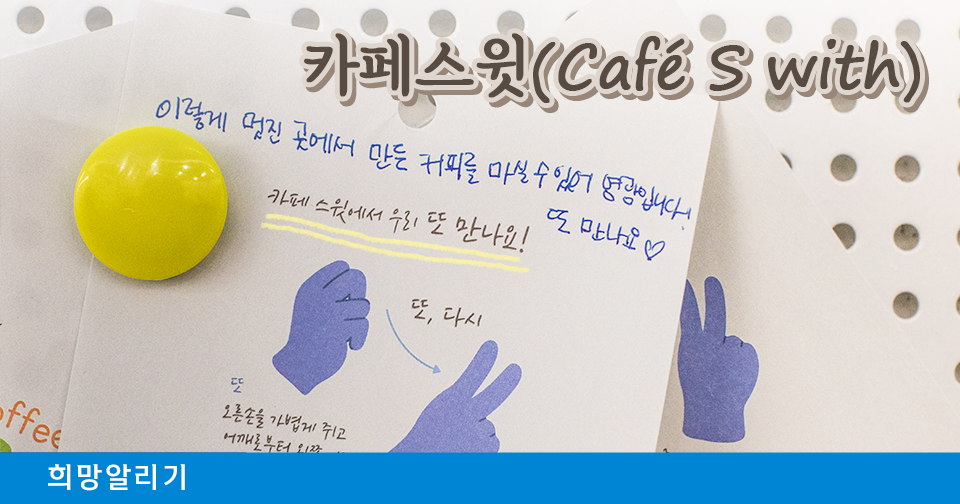 카페스윗(Café S with)
이렇게 멋진 곳에서 만든 커피를 마실 수 있어 영광입니다!
또 만나요♡
카페 스윗에서 우리 또 만나요!
또, 다시
또
오른손을 가볍게 쥐고
어깨로부터 왼쪽
offee
희망알리기